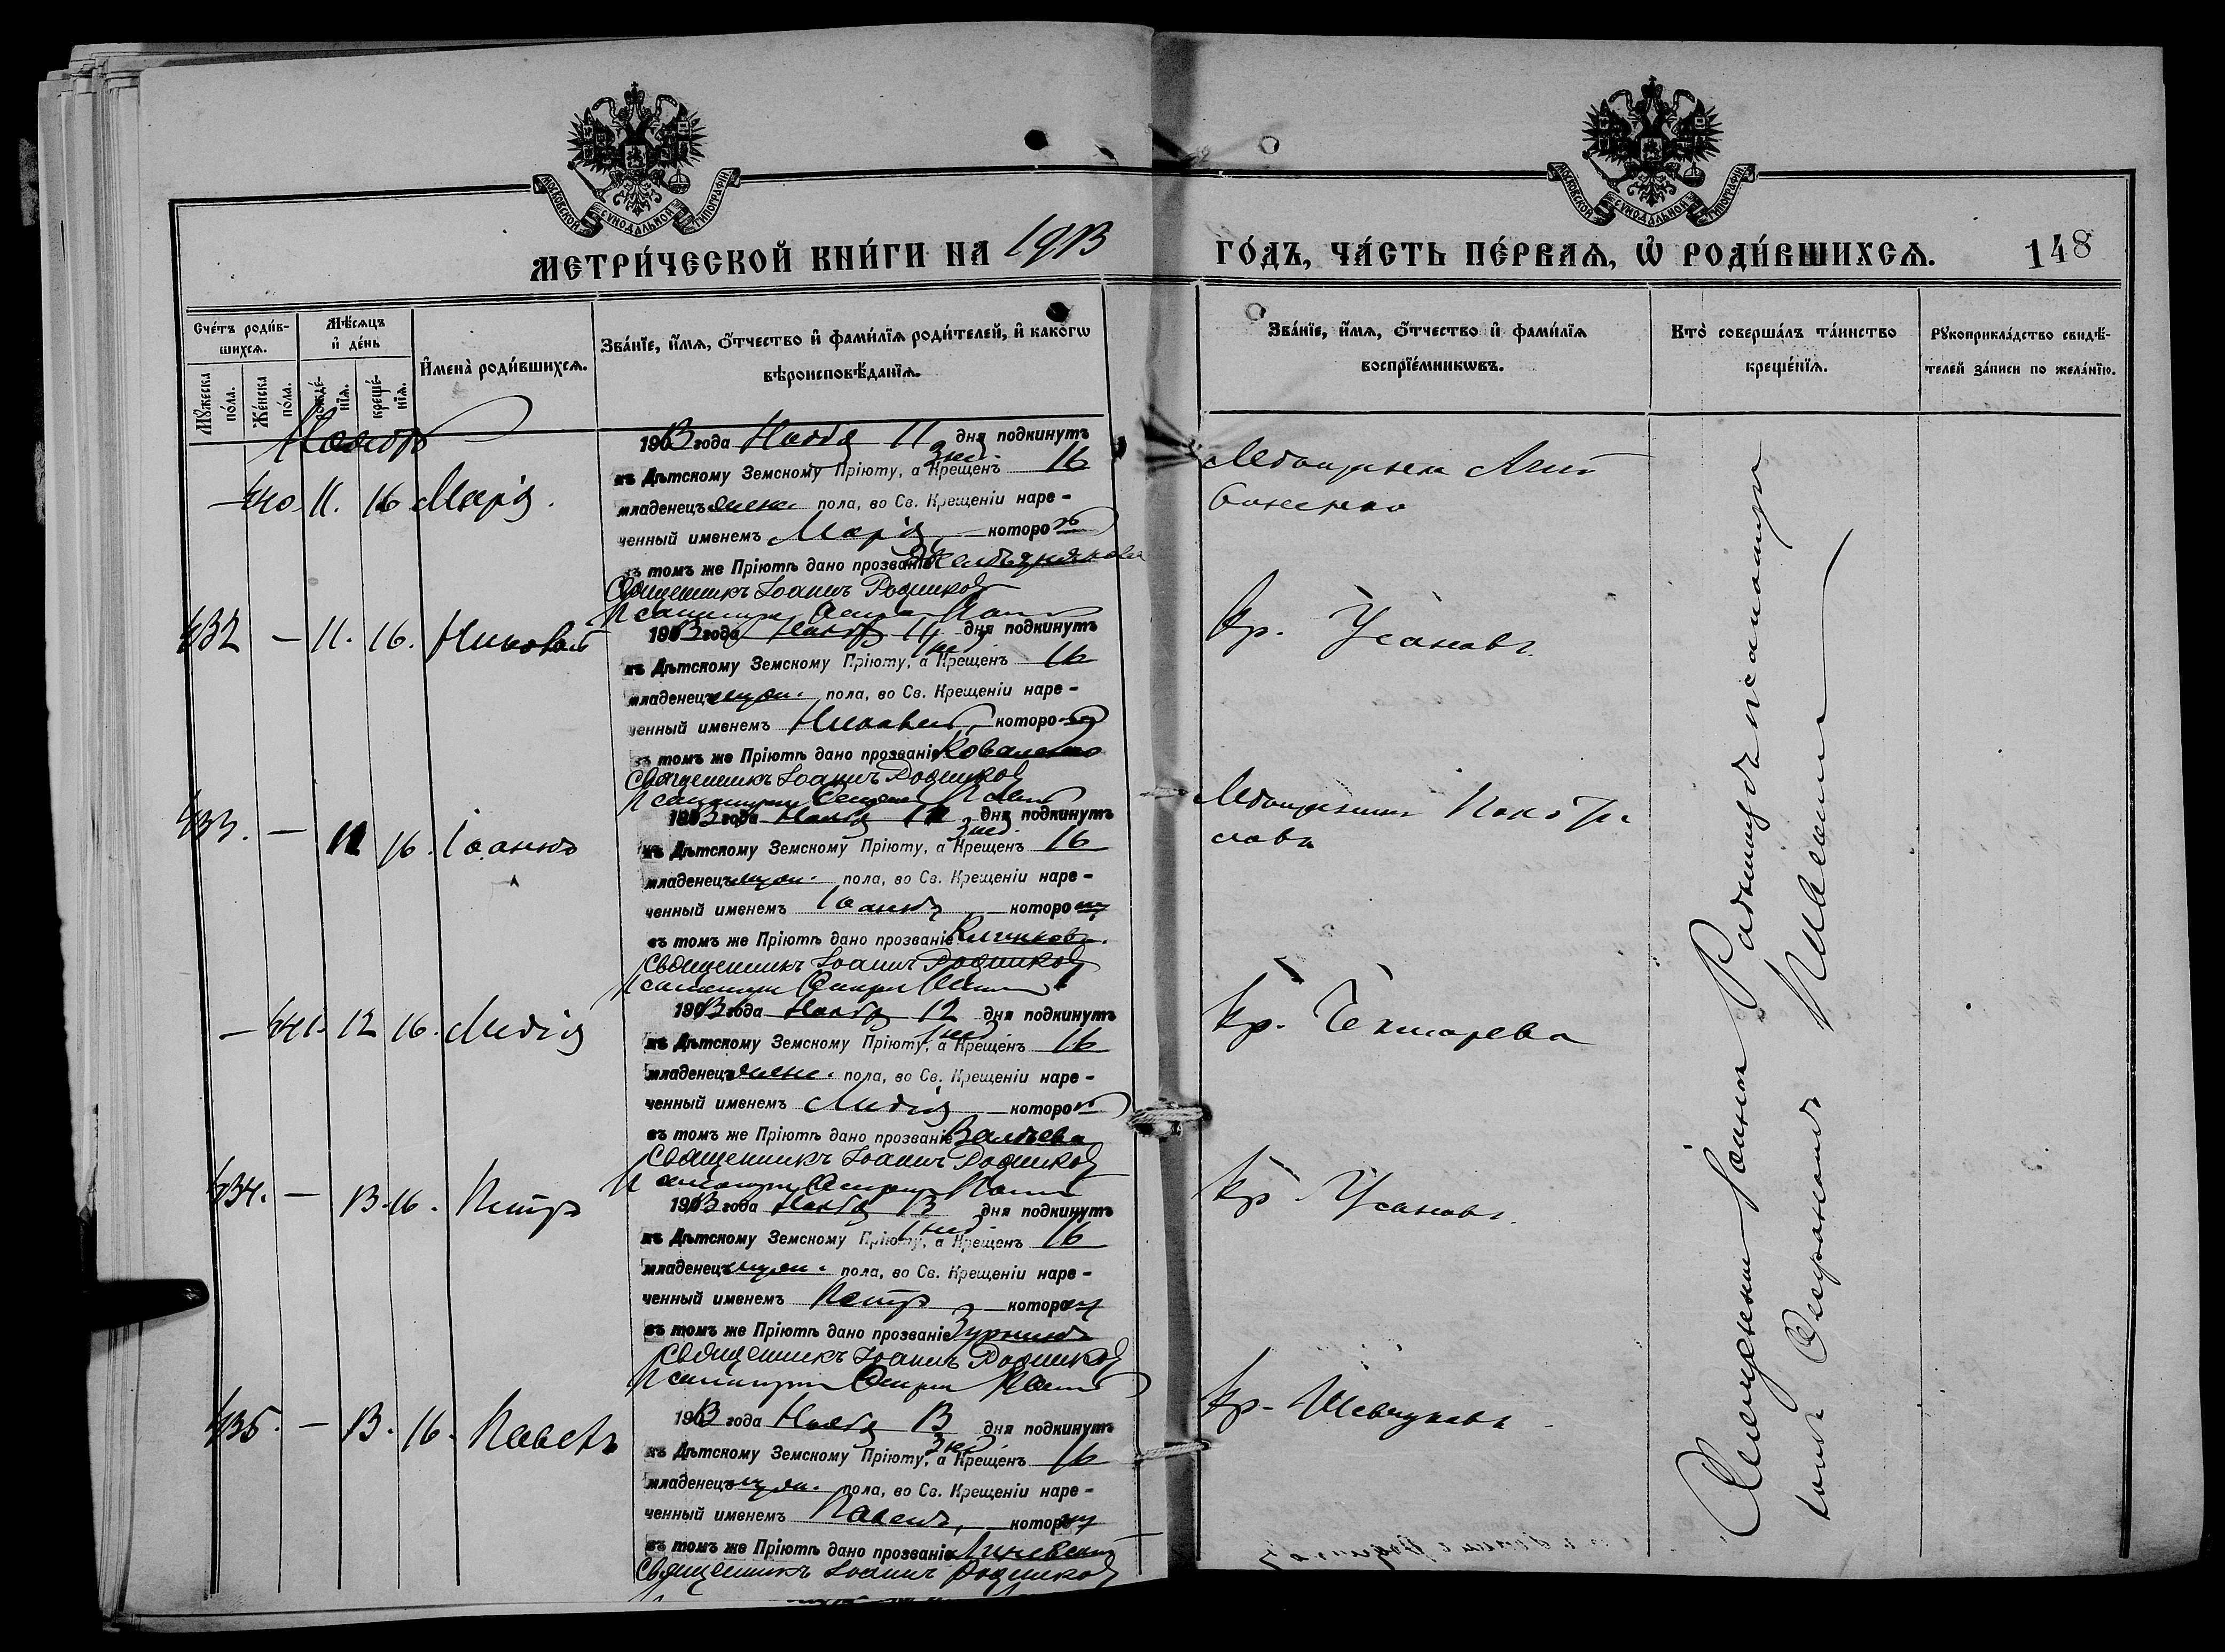 МОСКОВСКОЙ СѴНОДАЛЬНОЙ ТИПОГРАФІИ
МОСКОВСКОЙ СѴНОДАЛЬНОЙ ТИПОГРАФІИ
МЕТРИ́ЧЕСКОЙ КНИ́ГИ НА 1913
ГО́ДЪ, ЧА́СТЬ ПЕ́РВАѦ, Ѡ҆ РОДИ́ВШИХСѦ.
148
Сче́тъ роди́в-
шихсѧ.
Мꙋ́жеска
по́ла.
Же́нска
по́ла.
Мѣ́сѧцъ
и҆ де́нь
рожде́-
нїѧ.
креще́-
нїѧ.
И҆мена̀ роди́вшихсѧ.
Зва́нїе, и҆́мѧ, ѻ҆́тчество и҆ фами́лїѧ роди́телей, и҆ како́гѡ
вѣроисповѣ́данїѧ.
Зва́нїе, и҆́мѧ, ѻ҆́тчество и҆ фами́лїѧ
воспрїе́мникѡвъ.
Кто̀ соверша́лъ та́инство
креще́нїѧ.
Рꙋкоприкла́дство свидѣ́-
телей за́писи по жела́нїю.
Ноябрь
— 440. 11. 16 Марія.
1913 года Ноября 11 дня подкинутъ
3 нед.
къ Дѣтскому Земскому Пріюту, а Крещенъ 16
младенецъ женс. пола, во Св. Крещеніи наре-
ченный именемъ Марія, которой
въ томъ же Пріютѣ дано прозваніе
Священникъ Іоаннъ Родников
Псаломщикъ
Мѣщанка
432 — 11. 16. Николай
1913 года Ноября 11 дня подкинутъ
1 нед.
къ Дѣтскому Земскому Пріюту, а Крещенъ 16
младенецъ муж. пола, во Св. Крещеніи наре-
ченный именемъ Николай, которому
въ томъ же Пріютѣ дано прозваніе Коваленко
Священникъ Іоаннъ Родников
Псаломщикъ
Кр. Усановъ.
433. — 11 16. Іоаннъ
1913 года Ноября 11 дня подкинутъ
3 нед.
къ Дѣтскому Земскому Пріюту, а Крещенъ 16
младенецъ муж. пола, во Св. Крещеніи наре-
ченный именемъ Іоаннъ, которому
въ томъ же Пріютѣ дано прозваніе Климковъ.
Священникъ Іоаннъ Родников
Псаломщикъ
— 441. 12 16. Лидія
1913 года Ноября 12 дня подкинутъ
1 нед
къ Дѣтскому Земскому Пріюту, а Крещенъ 16
младенецъ женс. пола, во Св. Крещеніи наре-
ченный именемъ Лидія которой
въ томъ же Пріютѣ дано прозваніе
Священникъ Іоаннъ Родников
Псаломщикъ
Кр.
434. — 13. 16. Петръ
1913 года Ноября 13 дня подкинутъ
1 нед.
къ Дѣтскому Земскому Пріюту, а Крещенъ 16
младенецъ муж. пола, во Св. Крещеніи наре-
ченный именемъ Петръ которому
въ томъ же Пріютѣ дано прозваніе
Священникъ Іоаннъ Родников
Псаломщикъ
Кр. Усановъ.
435. — 13. 16. Павелъ
1913 года Ноября 13 дня подкинутъ
3 нед.
къ Дѣтскому Земскому Пріюту, а Крещенъ 16
младенецъ муж. пола, во Св. Крещеніи наре-
ченный именемъ Павелъ, которому
въ томъ же Пріютѣ дано прозваніе Линевскій
Священникъ Іоаннъ Родников
Кр. Шевчукова
Священникъ Іоаннъ Родниковъ псаломщикъ